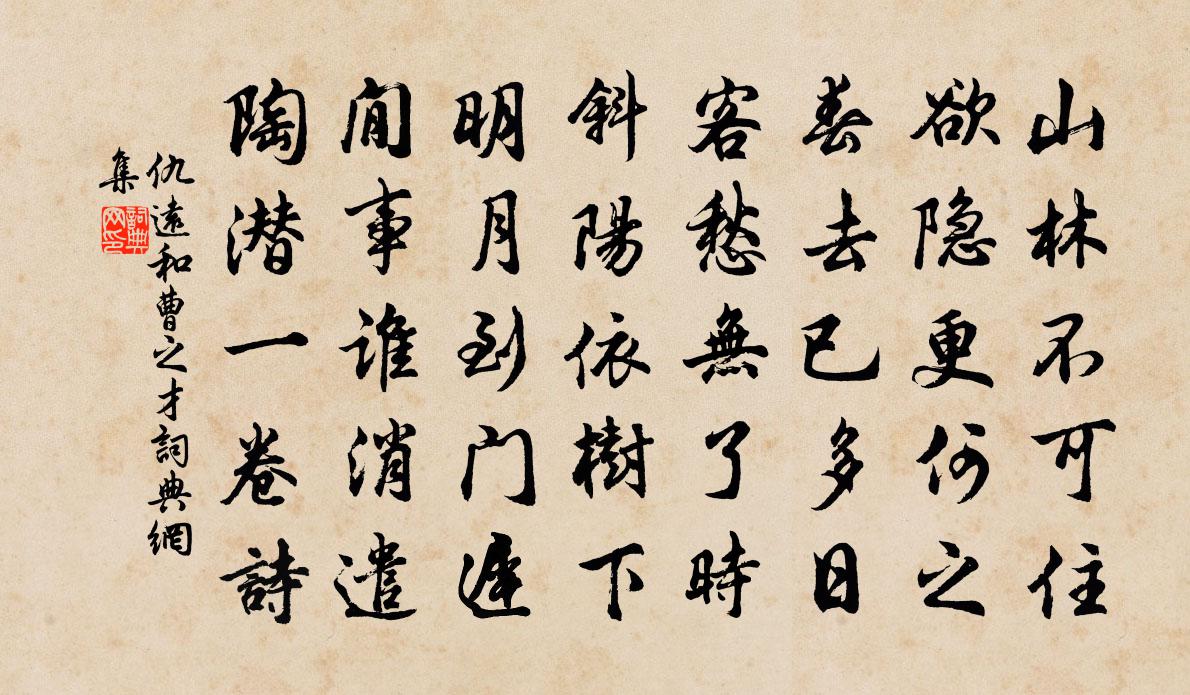 山林不可住
欲隐更何之
春去已多日
客愁無了時
斜陽依樹下
明月到门遲
閒事谁消遣
陶潜一卷詩
仇遠和曹之才詞典網
集
詞典
网印